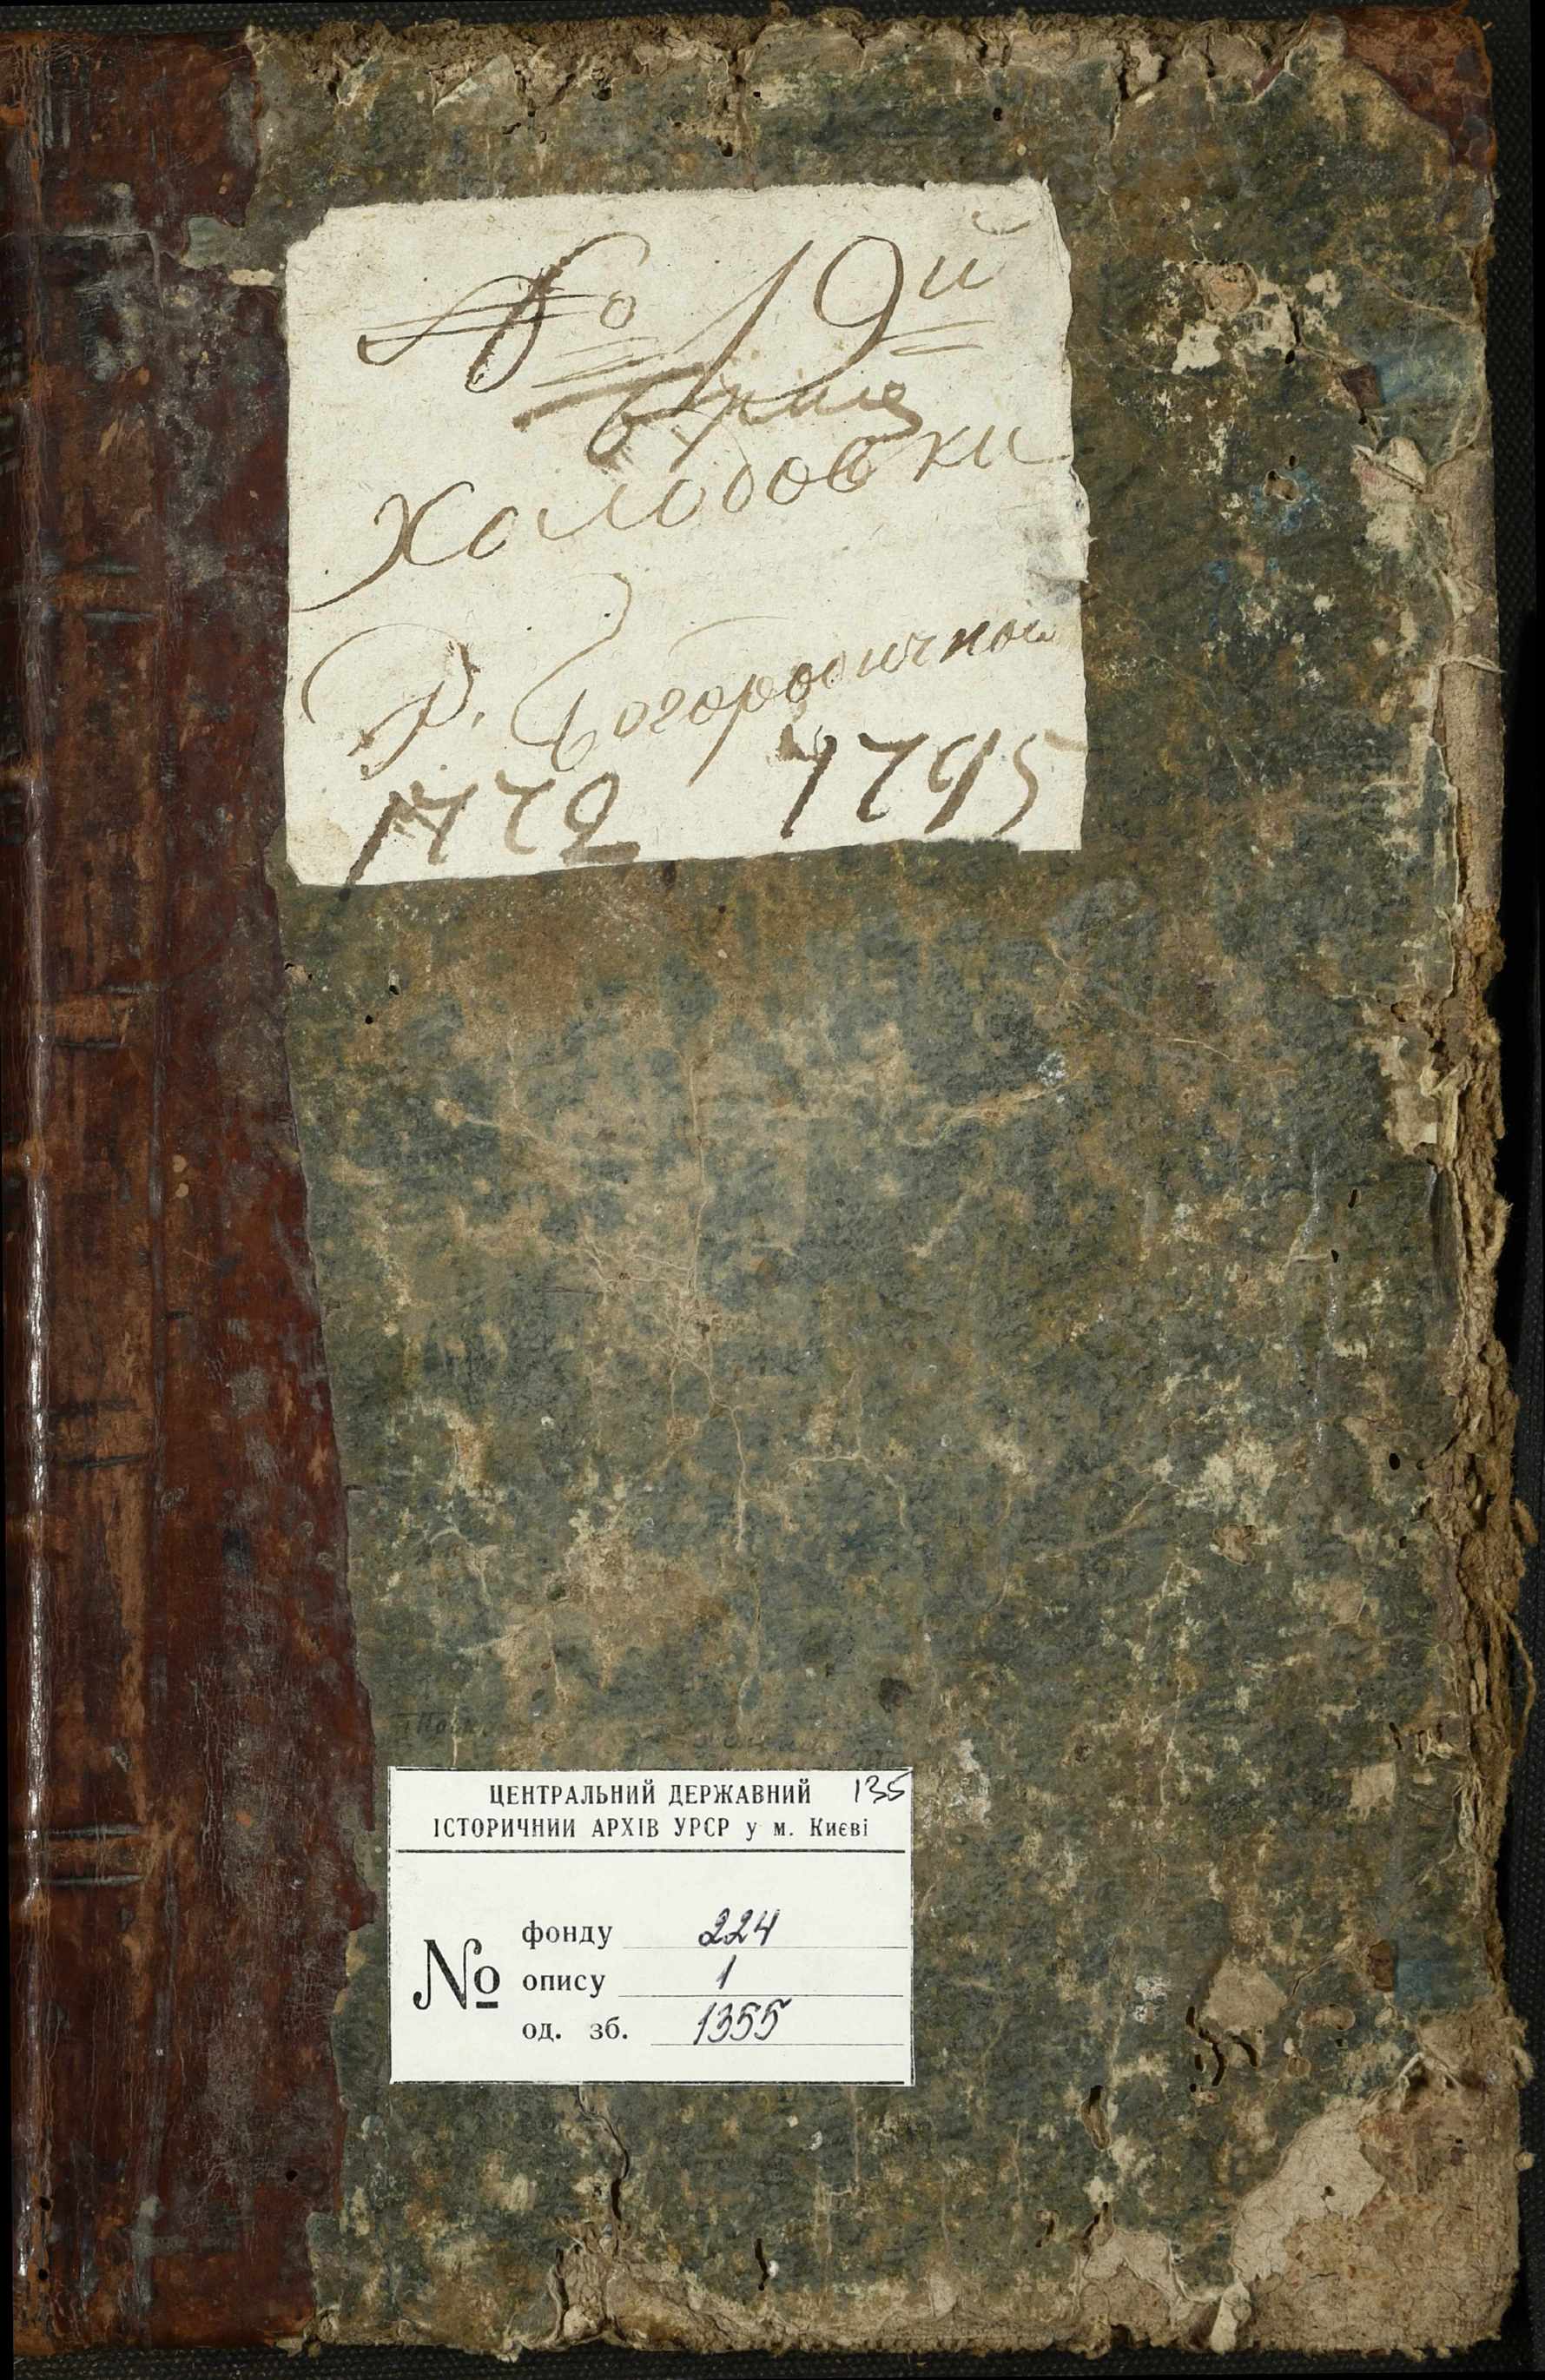 № 19й
Холодовки
Р. Богородичной
1772 1795
ЦЕНТРАЛЬНИЙ ДЕРЖАВНИЙ 135
ІСТОРИЧНИЙ АРХІВ УРСР у м. Києві
№ фонду 224
опису 1
од. зб. 1355